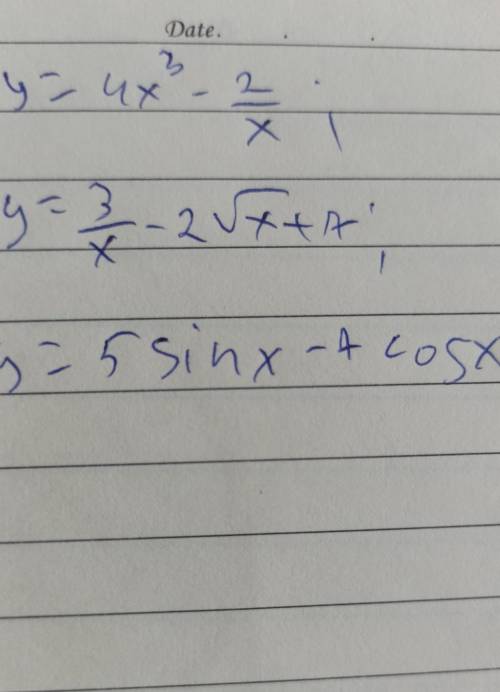 Date.
y = 4x³ - 2/x ;
y = 3/x - 2√x + 7 ;
y = 5 sin x - 7 cos x